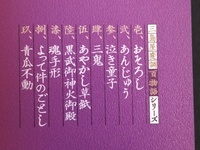 三島屋変調百物語シリーズ
壱、おそろし
弐、あんじゅう
参、泣き童子
肆、三鬼
伍、あやかし草紙
陸、黒武御神火御殿
漆、魂手形
捌、よって件のごとし
玖、青瓜不動